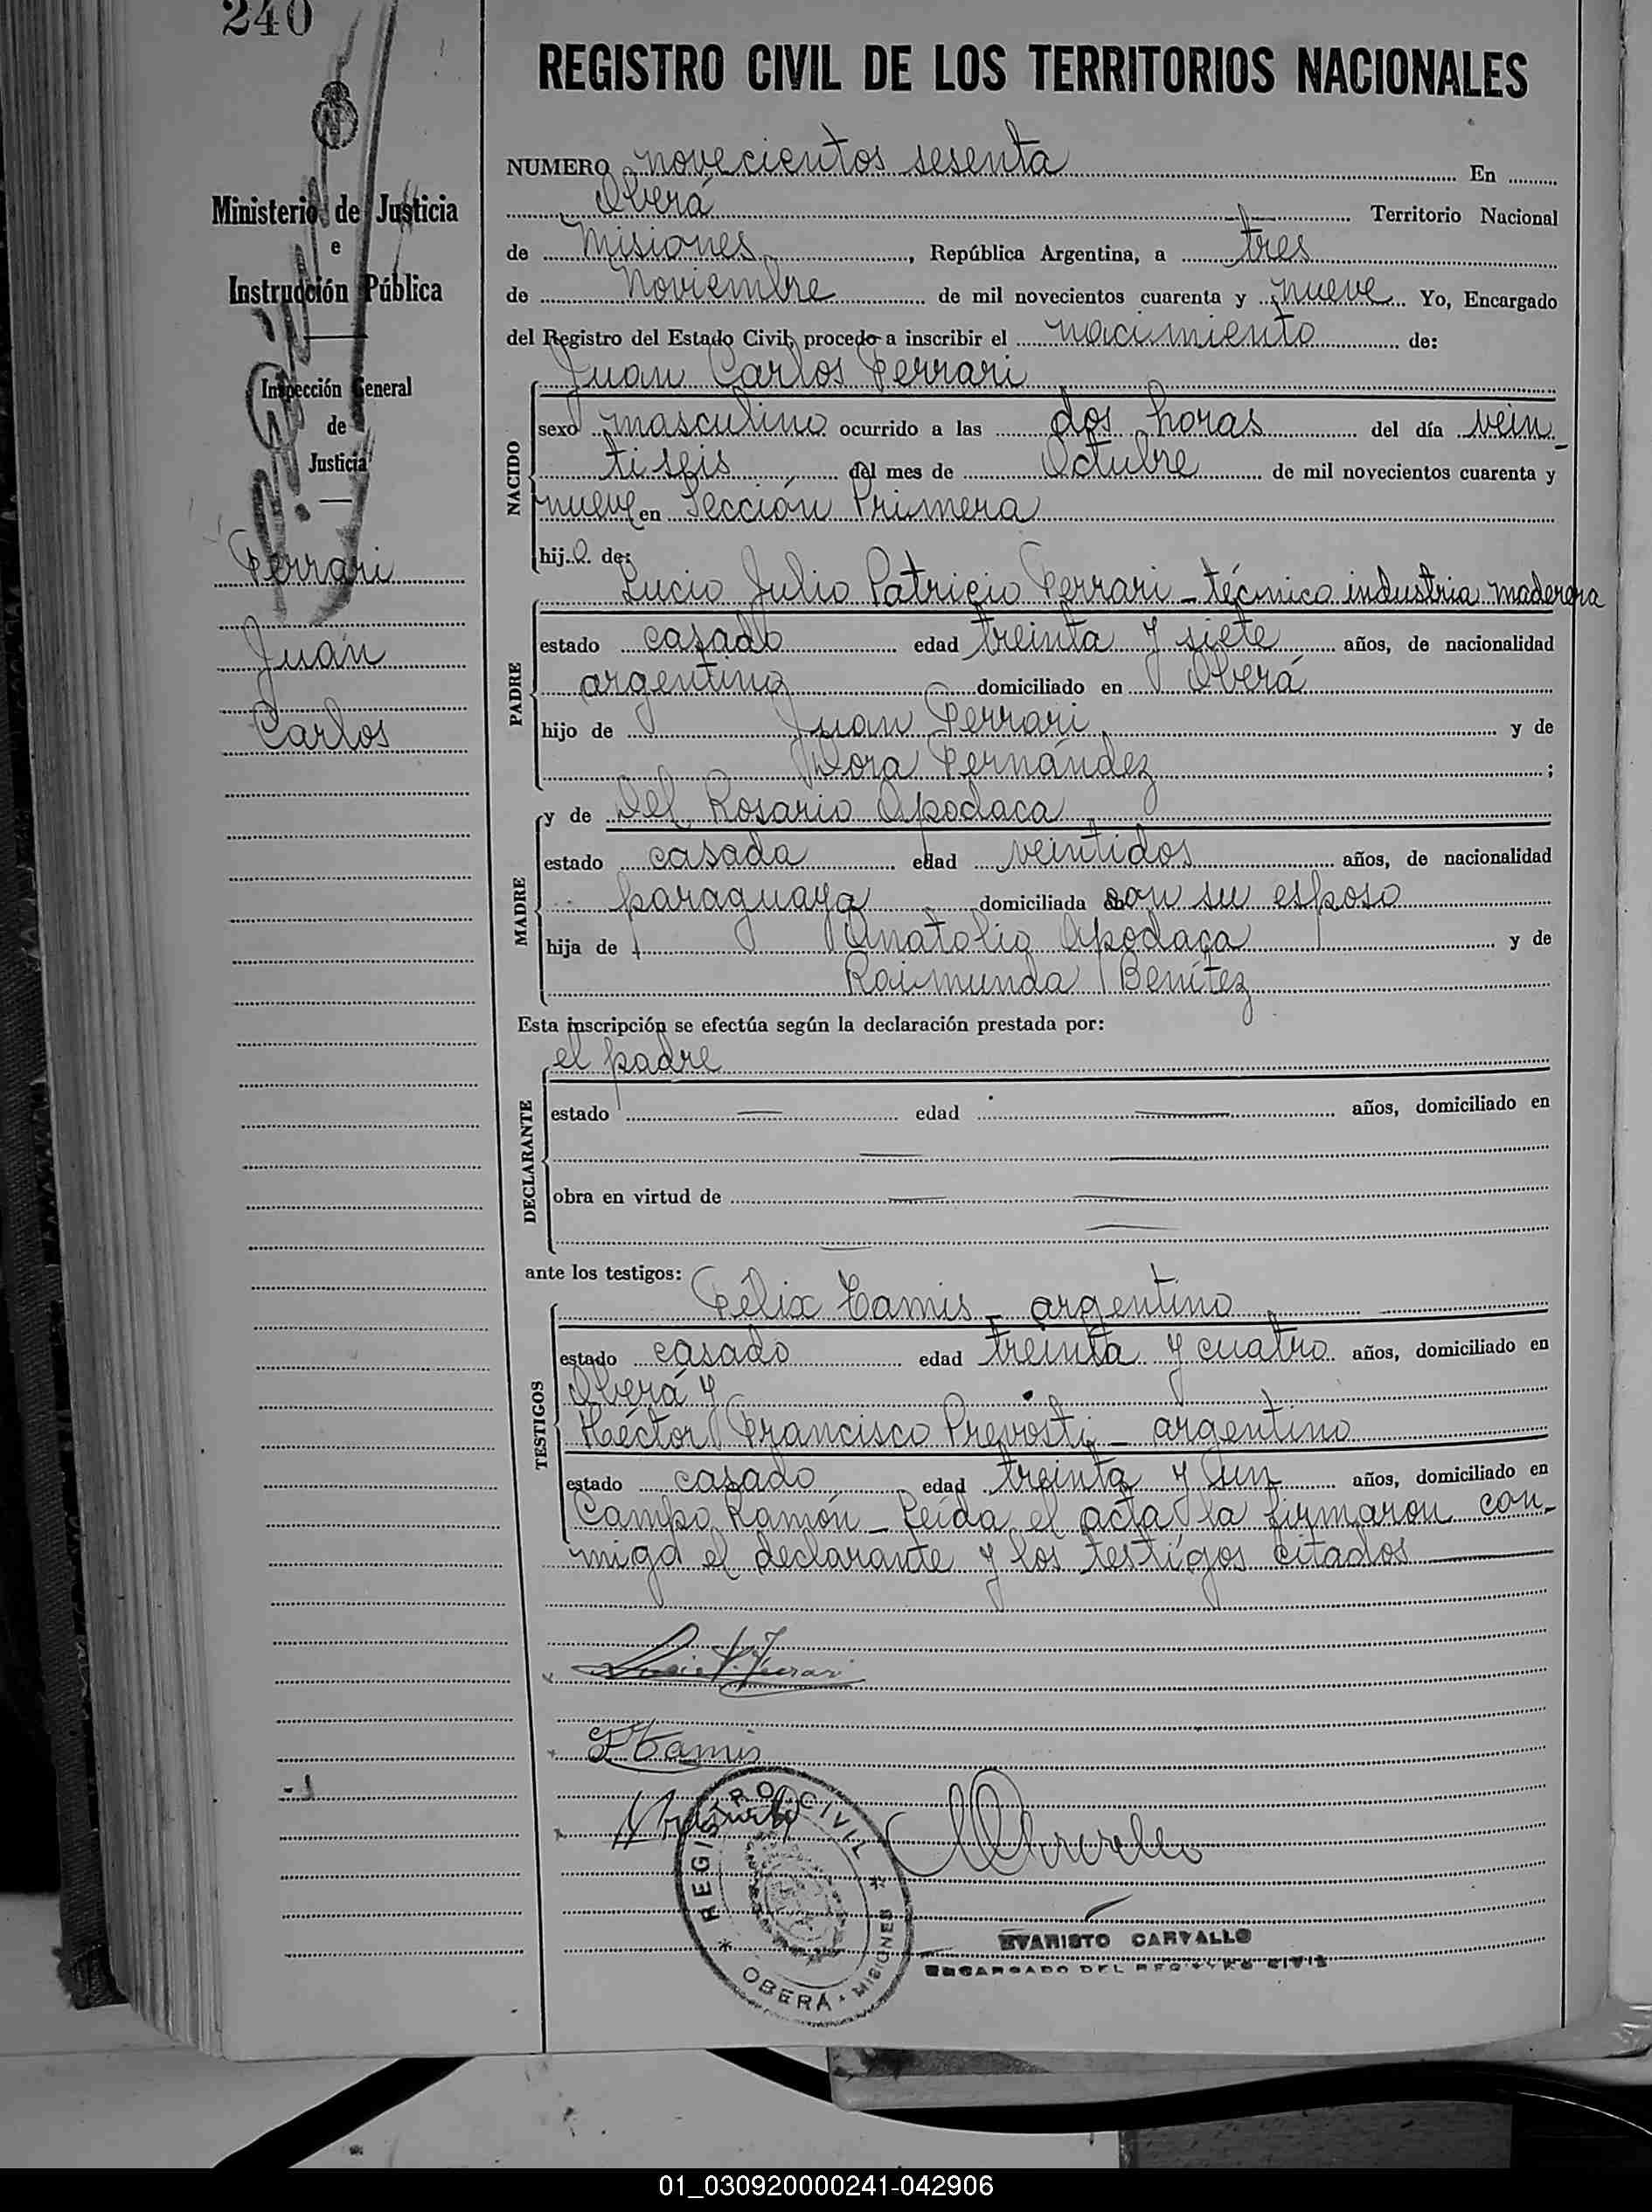 240
REGISTRO CIVIL DE LOS TERRITORIOS NACIONALES
Ministerio de Justicia
e
Instrucción Pública
Inspección General
de
Justicia
Ferrari
Juan
Carlos
NUMERO novecientos sesenta En
Oberá Territorio Nacional
de Misiones, República Argentina, a tres
de Noviembre de mil novecientos cuarenta y nueve Yo, Encargado
del Registro del Estado Civil, procedo a inscribir el nacimiento de:
Juan Carlos Ferrari
NACIDO
sexo masculino ocurrido a las dos horas del día vein-
tiseis del mes de Octubre de mil novecientos cuarenta y
nueve en Sección Primera
hijo de:
Lucio Julio Patricio Ferrari - técnico industria maderera
PADRE
estado casado edad treinta y siete años, de nacionalidad
argentina domiciliado en Oberá
hijo de Juan Ferrari y de
Dora Fernández;
y de Del Rosario Apodaca
MADRE
estado casada edad veintidos años, de nacionalidad
paraguaya domiciliada con su esposo
hija de Anatolio Apodaca y de
Raimunda Benítez
Esta inscripción se efectúa según la declaración prestada por:
el padre
DECLARANTE
estado — edad — años, domiciliado en
obra en virtud de
ante los testigos:
Félix Tamis - argentino
TESTIGOS
estado casado edad treinta y cuatro años, domiciliado en
Oberá y
Héctor Francisco Prevosti - argentino
estado casado edad treinta y un años, domiciliado en
Campo Ramón - Leída el acta la firmaron con-
migo el declarante y los testigos citados
Lucio P. Ferrari
F Tamis
REGISTRO CIVIL
OBERÁ · MISIONES
EVARISTO CARVALLO
ENCARGADO DEL REGISTRO CIVIL
01_030920000241-042906